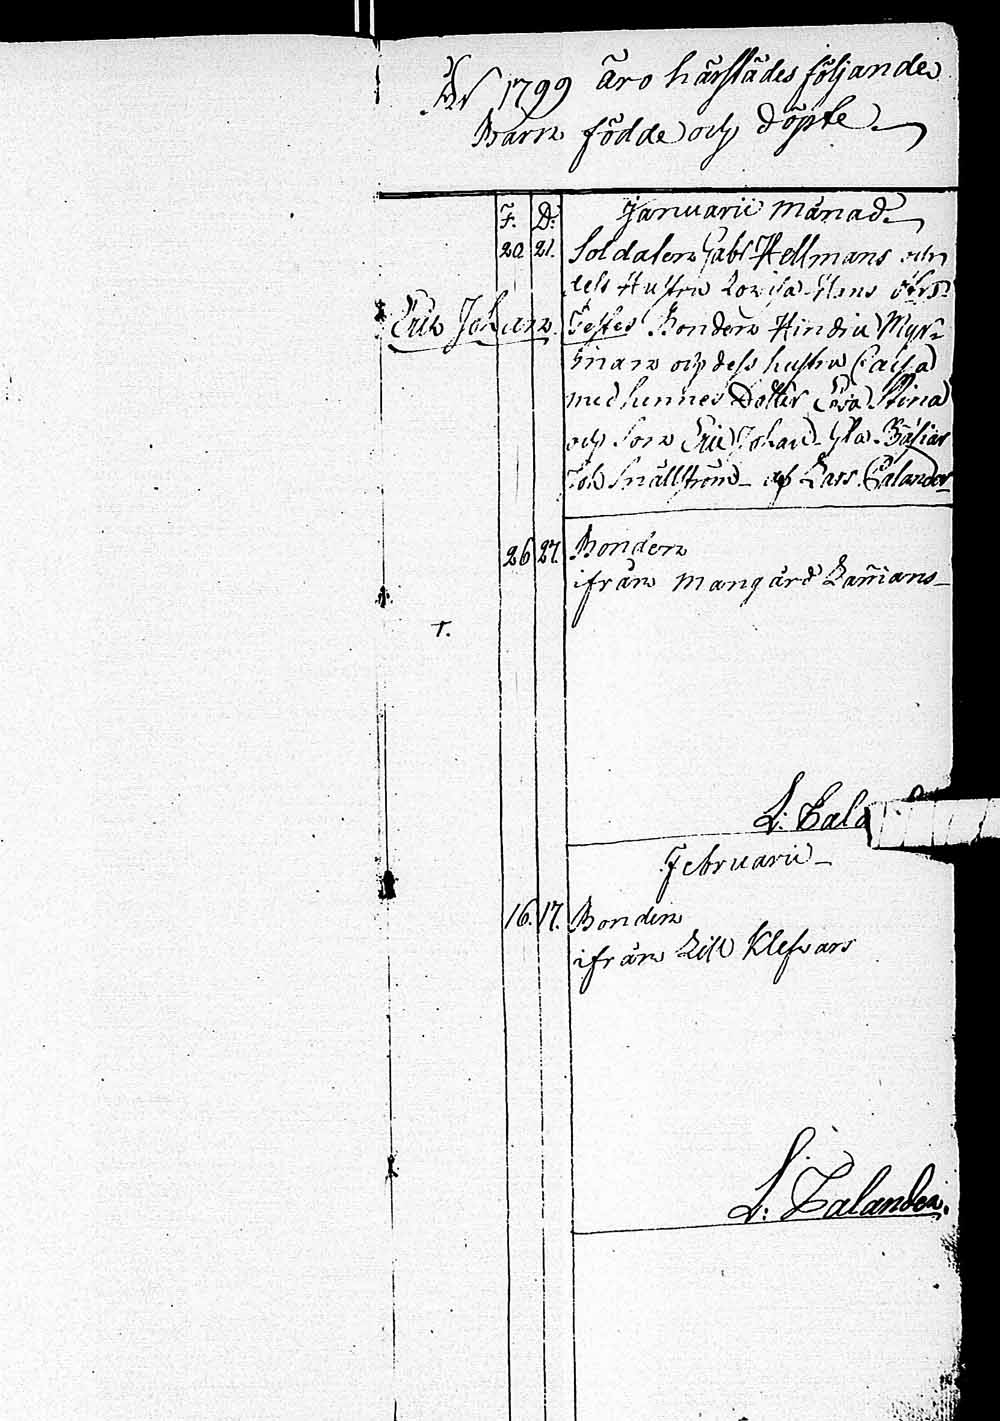 År 1799 äro härstädes följande
Barn födde och döpte
F. D: Januarii Månad
20 21. Soldaten Gabr Hellmans och
dess Hustru Lovisa
Eric Johan. Testes Bonden Hindric Myr-
man och dess hustru Caisa
med hennes Dotter Eva Stina
och Son Eric Johan
Joh Snällström af Lars Calander
26 27. Bonden
ifrån Mangård
T.
L: Cala
Februarii
16. 17. Bonden
ifrån Lill Klefvars
L: Calander.